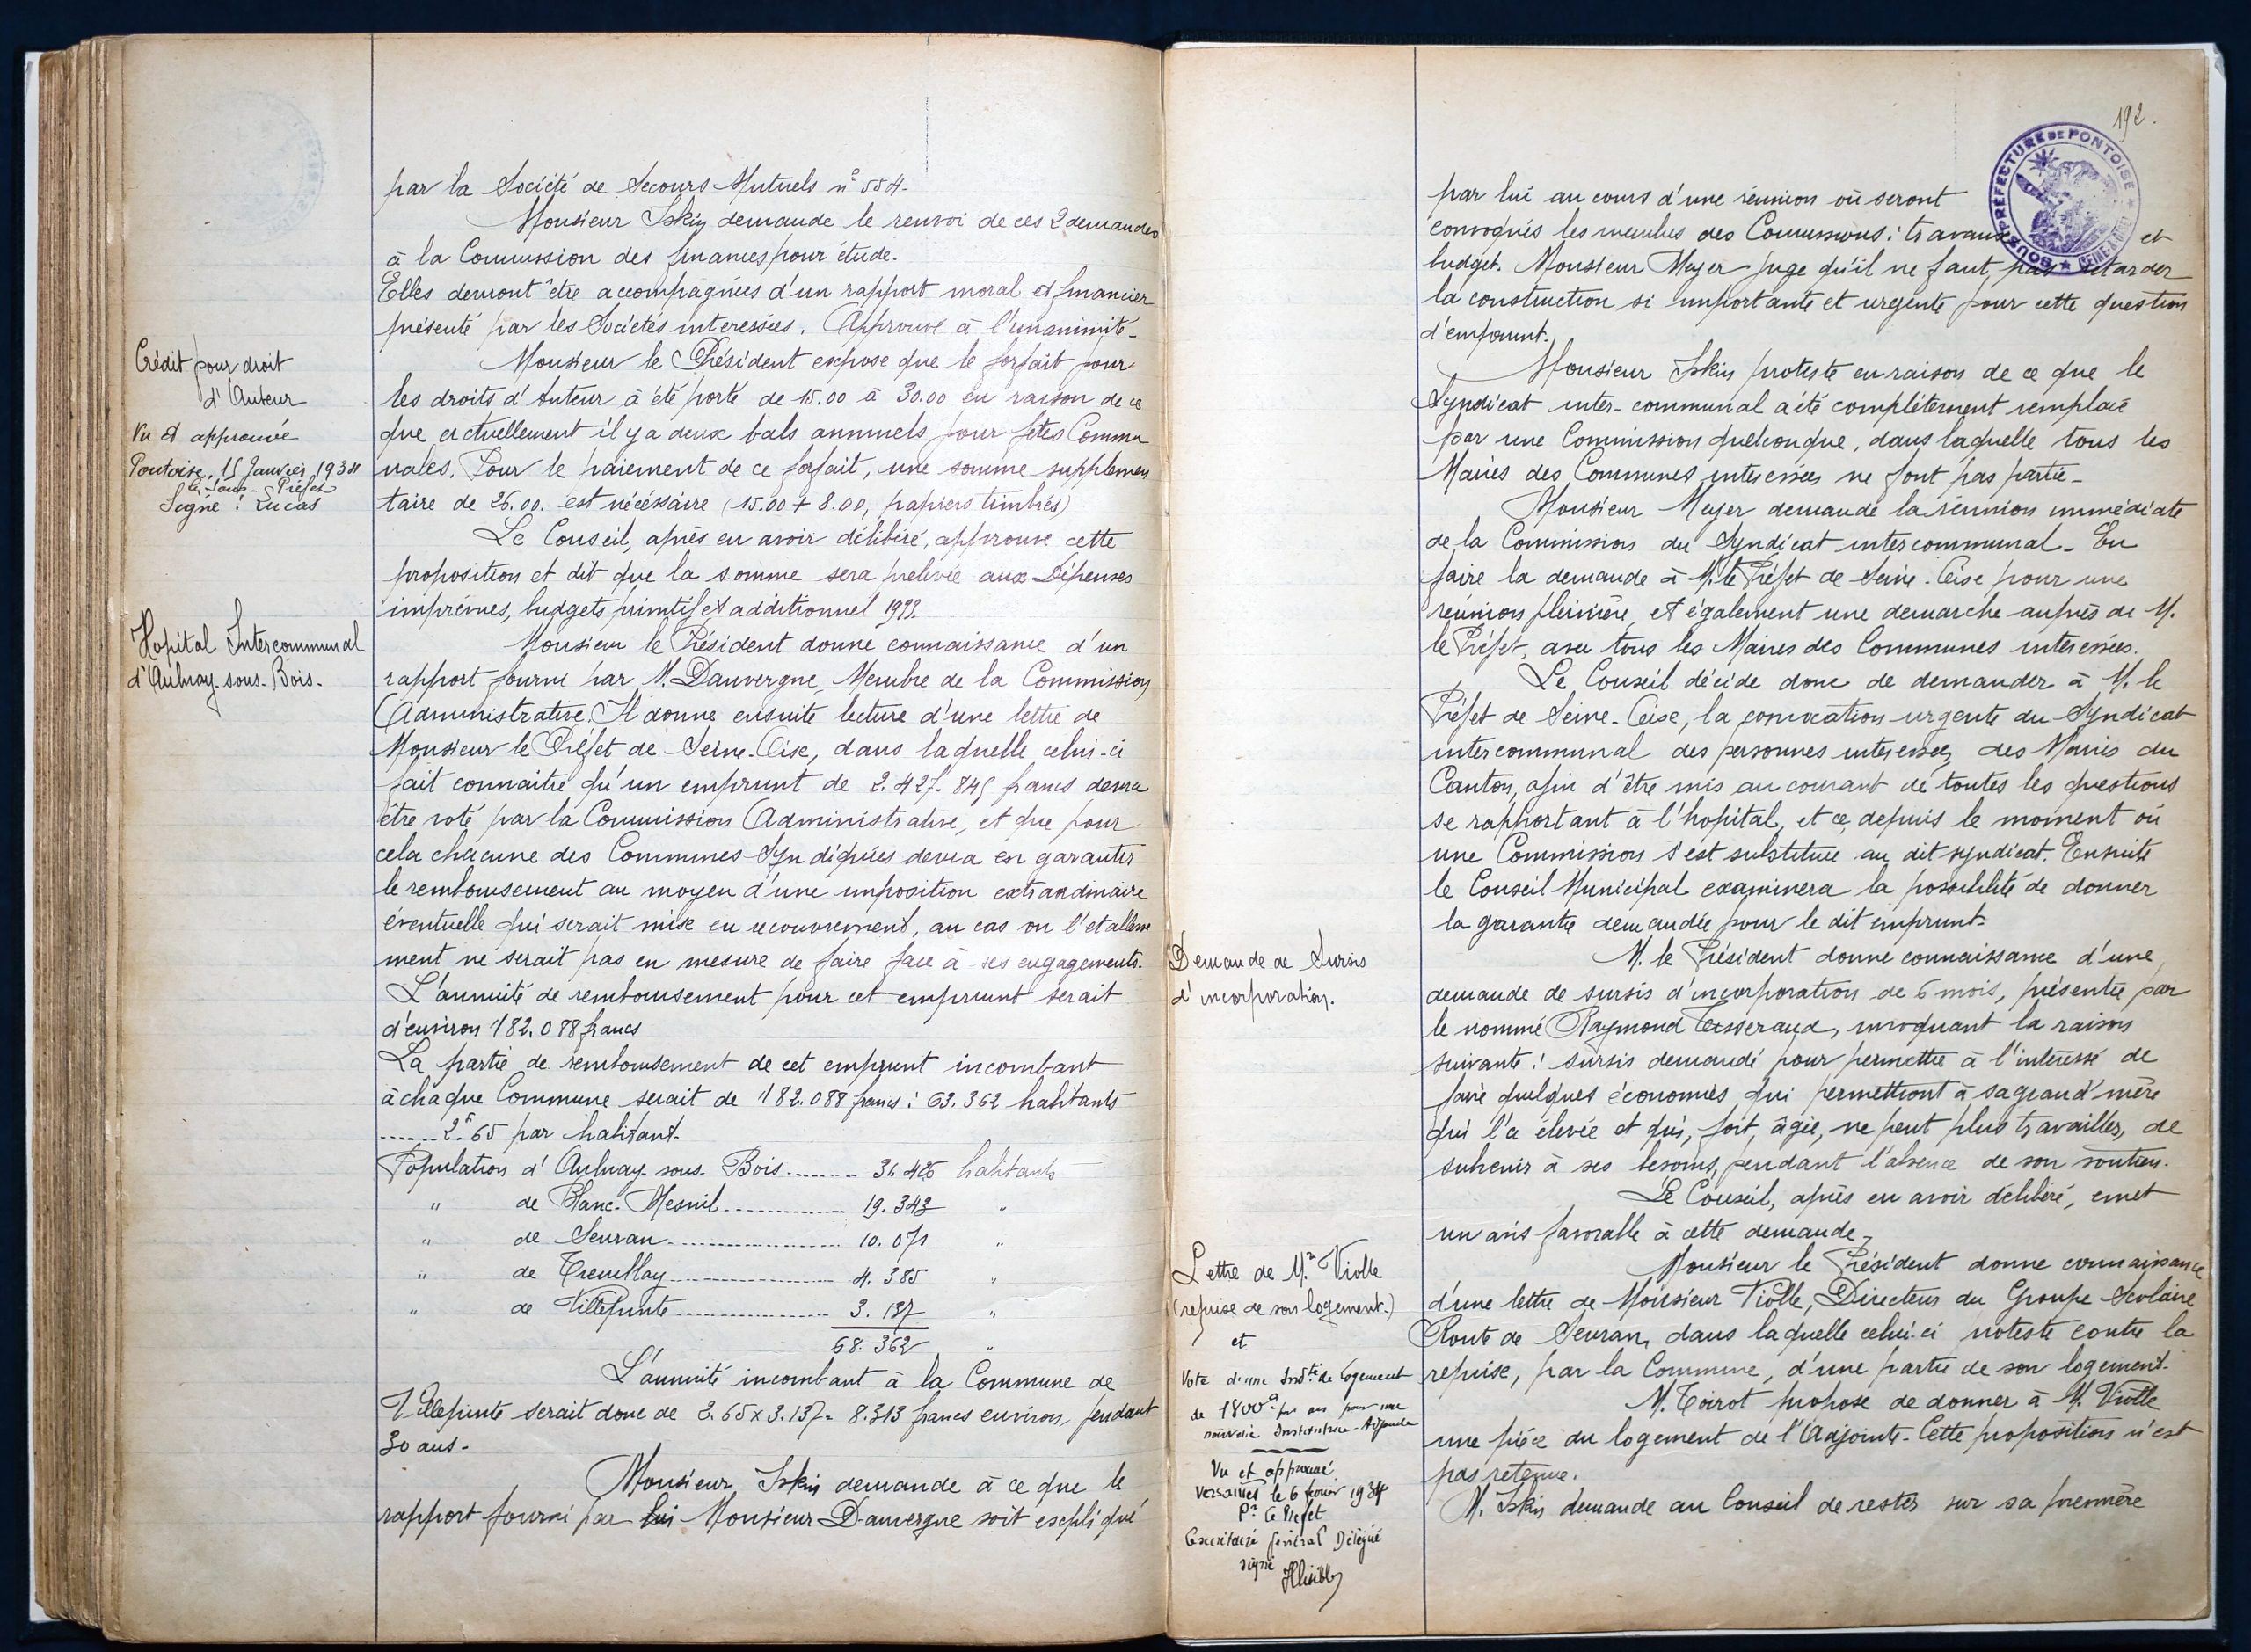 par la Société de Secours Mutuels n° 554-
Monsieur Iskin demande le renvoi de ces 2 demandes
à la Commission des finances pour étude.
Elles devront être accompagnées d'un rapport moral et financier
présenté par les Sociétés interessées. Approuvé à l'unanimité-
Crédit pour droit
d'Auteur
Vu et approuvé
Pontoise, 15 Janvier 1934
le Sous-Préfet
Signé : Lucas
Monsieur le Président expose que le forfait pour
les droits d'Auteur à été porté de 15.00 à 30.00 en raison de ce
que actuellement il y a deux bals annuels pour fêtes Commu
nales. Pour le paiement de ce forfait, une somme supplemen
taire de 26.00. est nécéssaire (15.00 + 8.00, papiers timbrés)
Le Conseil, après en avoir délibéré, approuve cette
proposition et dit que la somme sera prelevée aux Dépenses
imprévues, budgets primitif et additionnel 1933.
Hopital Intercommunal
d'Aulnay-sous-Bois-
Monsieur le Président donne connaissance d'un
rapport fourni par M. Dauvergne, Membre de la Commission
Administrative. Il donne ensuite lecture d'une lettre de
Monsieur le Préfet de Seine-Oise, dans laquelle celui-ci
fait connaitre qu'un emprunt de 2.427.845 francs devra
être voté par la Commission Administrative, et que pour
cela chacune des Communes Syndiquées devra en garantir
le remboursement au moyen d'une imposition extraordinaire
éventuelle qui serait mise en recouvrement, au cas ou l'etablisse
ment ne serait pas en mesure de faire face à ses engagements.
L'annuité de remboursement pour cet emprunt serait
d'environ 182.088 francs
La partie de remboursement de cet emprunt incombant
à chaque Commune serait de 182.088 francs : 63.362 habitants
...... 2f.65 par habitant.
Population d'Aulnay-sous-Bois......... 31.426 habitants
" de Blanc-Mesnil............... 19.343 "
" de Sevran..................... 10.071 "
" de Tremblay................... 4.385 "
" de Villepinte.................. 3.137 "
68.362 "
L'annuité incombant à la Commune de
Villepinte serait donc de 2.65 x 3.137 = 8.313 francs environ, pendant
30 ans-
Monsieur Iskin demande à ce que le
rapport fourni par lui Monsieur Dauvergne soit expliqué
192.
SOUS-PRÉFECTURE DE PONTOISE
par lui au cours d'une réunion où seront
convoqués les membres des Commissions : travaux et
budget. Monsieur Meyer juge qu'il ne faut pas retarder
la construction si importante et urgente pour cette question
d'emprunt.
Monsieur Iskin proteste en raison de ce que le
Syndicat inter-communal a été complètement remplacé
par une Commission quelconque, dans laquelle tous les
Maires des Communes interessées ne font pas partie-
Monsieur Meyer demande la réunion immédiate
de la Commission du Syndicat intercommunal- En
faire la demande à M. le Préfet de Seine-Oise pour une
réunion plénière, et également une demarche auprès de M.
le Préfet, avec tous les Maires des Communes interessées.
Le Conseil décide donc de demander à M. le
Préfet de Seine-Oise, la convocation urgente du Syndicat
intercommunal des personnes interessées, des Maires du
Canton, afin d'être mis au courant de toutes les questions
se rapportant à l'hopital, et ce, depuis le moment où
une Commission s'est substituée au dit syndicat. Ensuite
le Conseil Municipal examinera la possibilité de donner
la garantie demandée pour le dit emprunt-
Demande de Sursis
d'incorporation.
M. le Président donne connaissance d'une
demande de sursis d'incorporation de 6 mois, présentée par
le nommé Raymond Tisserand, invoquant la raison
suivante : sursis demandé pour permettre à l'intéressé de
faire quelques économies qui permettront à sa grand'mère
qui l'a élevée et qui, fort, âgée, ne peut plus travailler, de
subvenir à ses besoins, pendant l'absence de son soutien.
Le Conseil, après en avoir délibéré, emet
un avis favorable à cette demande-
Lettre de Mr Violle
(reprise de son logement.)
et
Vote d'une Indté de Logement
de 1800f par an pour une
nouvelle Institutrice-Adjointe
Vu et approuvé
Versailles le 6 février 1934
Pr le Préfet
Le secrétaire général Délégué
signé
Illisible
Monsieur le Président donne connaissance
d'une lettre de Monsieur Violle, Directeur du Groupe Scolaire
Route de Sevran, dans laquelle celui-ci proteste contre la
reprise, par la Commune, d'une partie de son logement-
M. Toirot propose de donner à M. Violle
une pièce du logement de l'Adjointe- Cette proposition n'est
pas retenue.
M. Iskin demande au Conseil de rester sur sa première